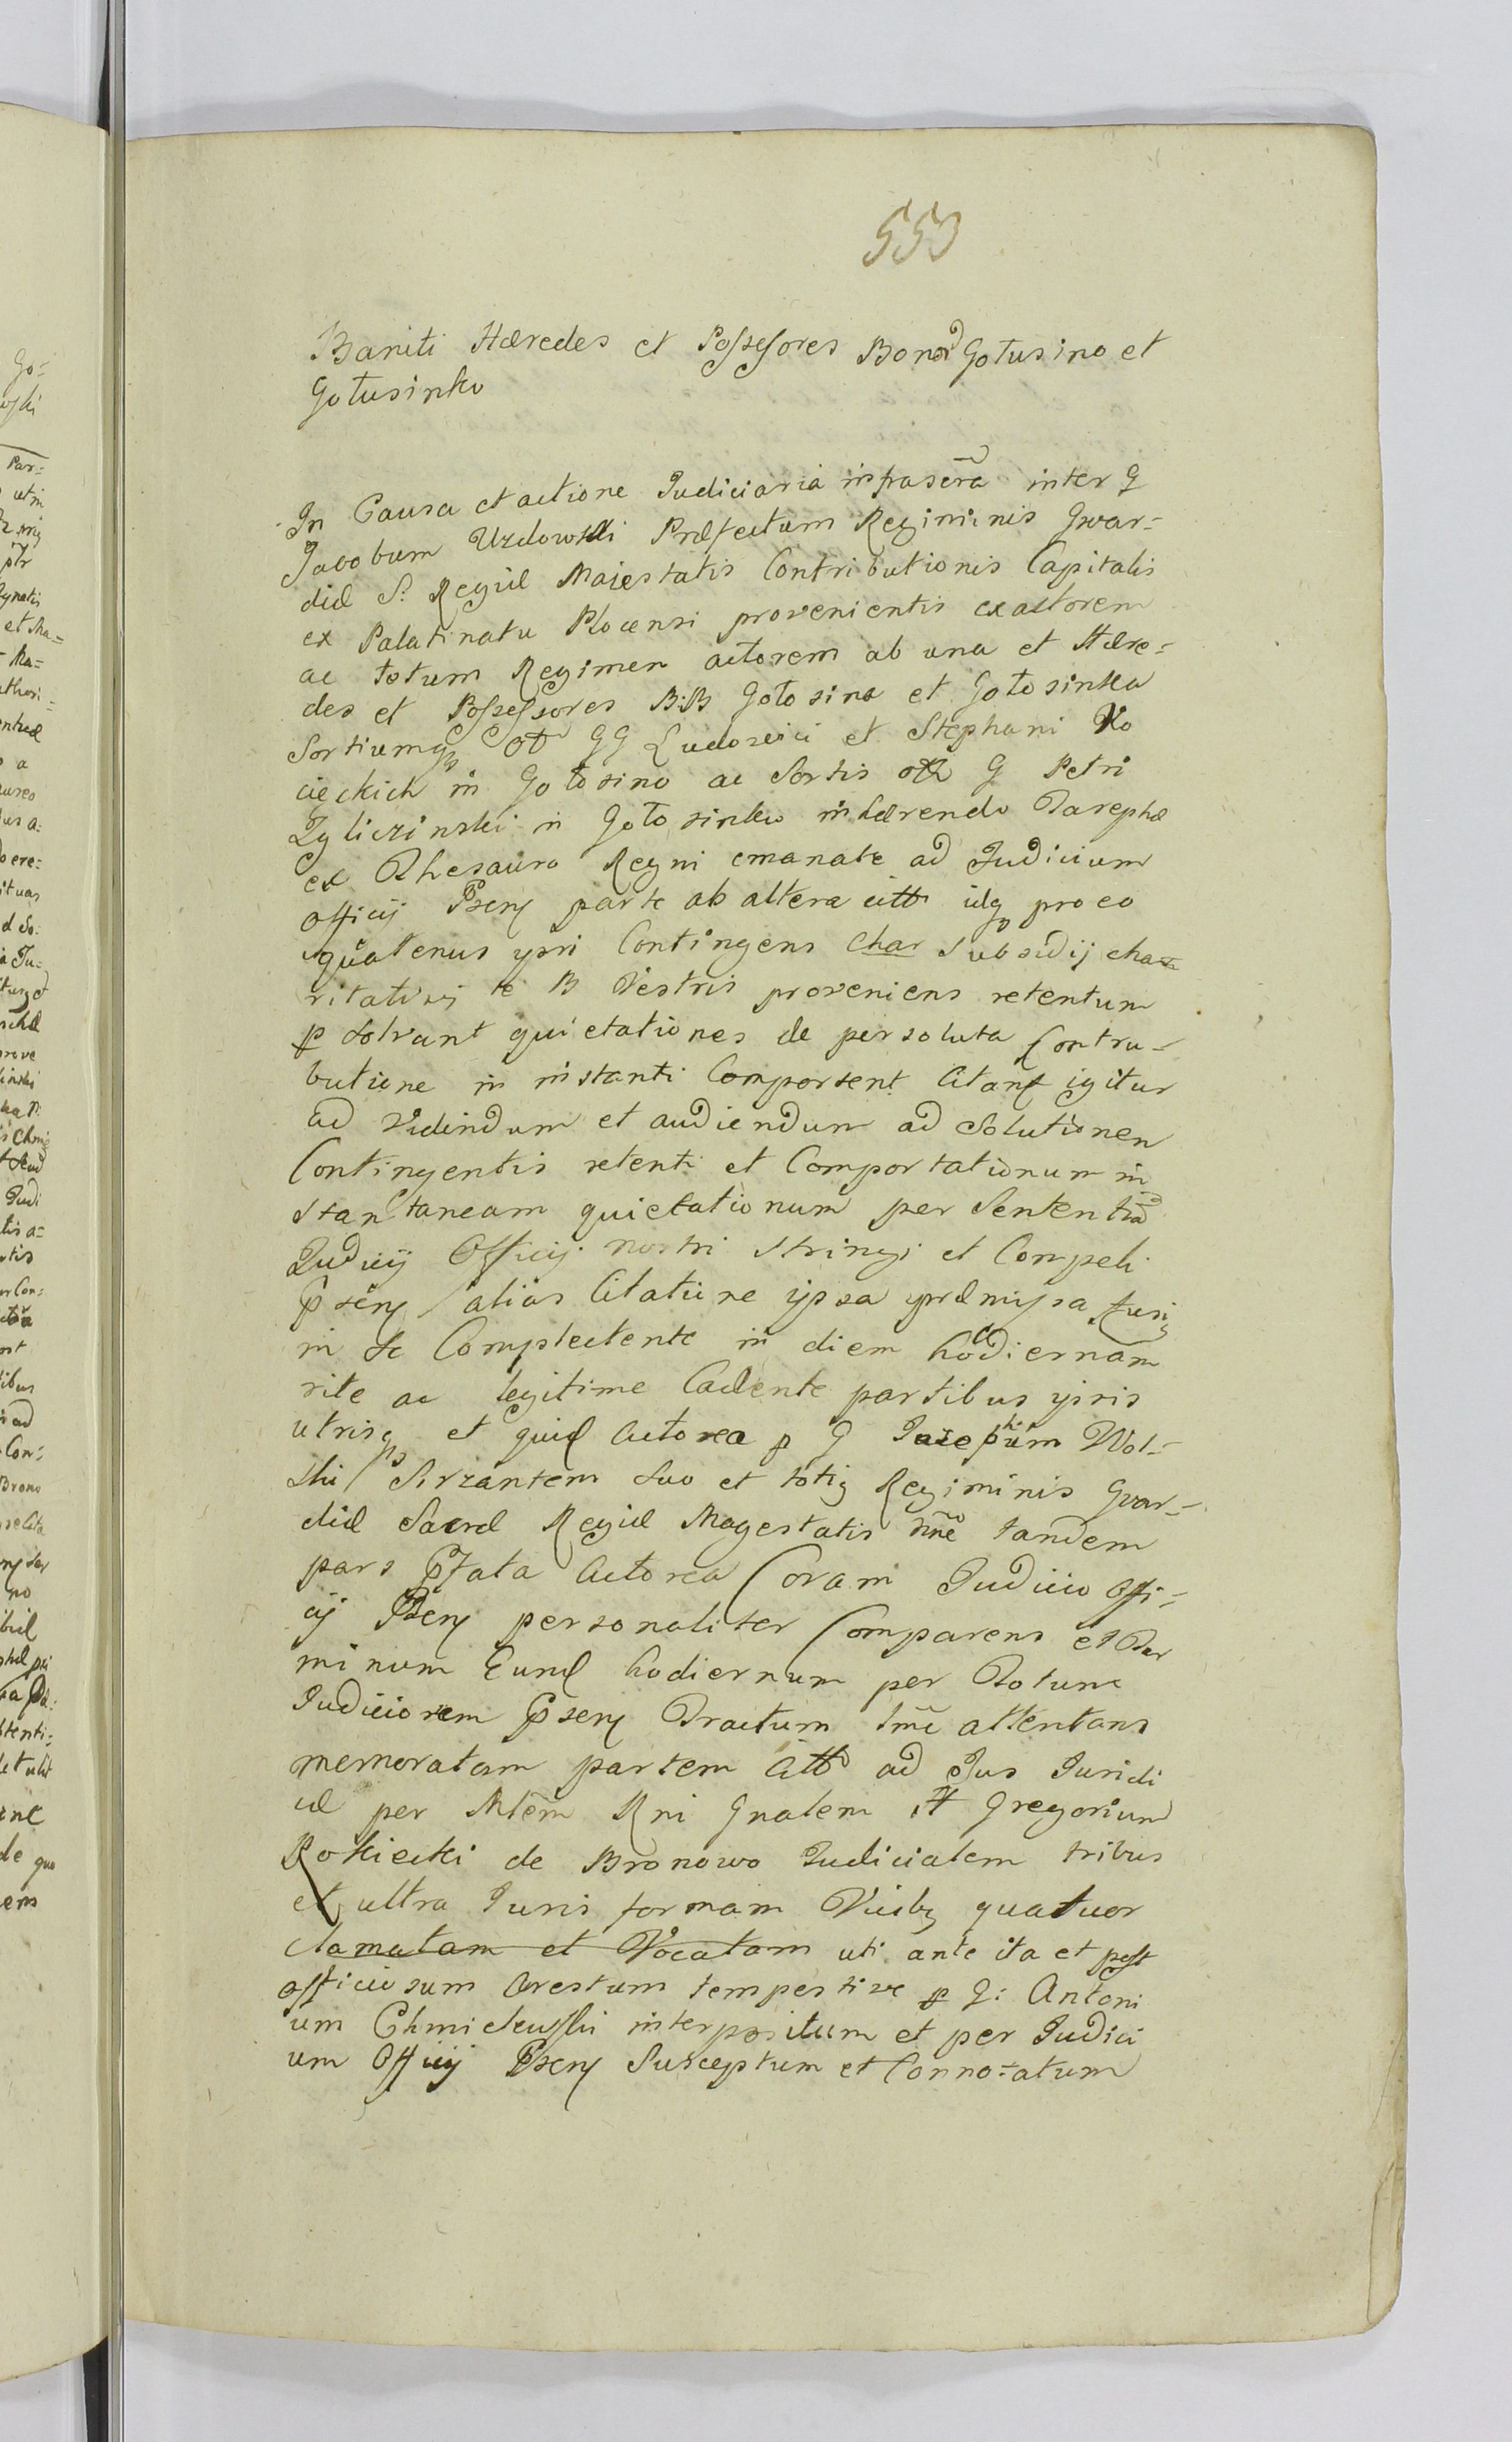 553
Baniti Hæredes et Possessores Bonor Gotusino et
Gotusinko
In Causa et actione Judiciaria infrascra inter G
Jacobum Uzdowski Præfectum Regiminis Gvar=
diæ S. Regiæ Maiestatis Contributionis Capitalis
ex Palatinatu Plocensi provenientis exactorem
ac totum Regimen actorem ab una et Hære=
des et Possessores B:B Gotosina et Gotosinka
Sortiumq GG Ludovici et Stephani Ko
cieckich in Gotosino ac Sortis G Petri
Zgliczinski in Gotosinko inhærendo Tarephæ
ex Thesauro Regni emanatæ ad Judicium
Officij Psens parte ab altera citt idq pro eo
quatenus ipsi Contingens Char Subsidij cha
ritativi te B Vestris proveniens retentum
p solvant quietationes de persoluta Contri=
butione in instanti Comportent Citant igitur
ad Videndum et audiendum ad Solutionen
Contingentis retenti et Comportationum in
stantaneam quietationum per Sententia
Judicij Officij nostri stringi et Compeli
Psens alias Citatione ipsa præmissa fusi
in se Complectente in diem hodiernam
rite ac legitime Cadente partibus ipsis
utrisq et quid Actorea p G Josephum Wol=
ski Sirzantem Suo et totig Regiminis Gvar=
diæ Sacræ Regiæ Magestatis nne tandem
pars Pfata Actorea Coram Judicio Offi=
cij Psens personaliter Comparens et Ter
minum Eund hodiernum per Totum
Judiciorem Psens Tractum tme attentans
memoratam partem Citt ad Jus Juridi
cæ per Mtem Rni Gnalem Gregorium
Rokicki de Bronowo Judicialem tribus
et ultra Juris formam Vicib quatuor
clamatam et Vocatam uti ante ita et post
officiosum Arestum tempestive p G: Antoni
um Chmielewski interpositum et per Judici
um Officij Psens Susceptum et Connotatum